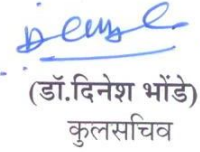 (डॉ.दिनेश भोंडे)
कुलसचिव